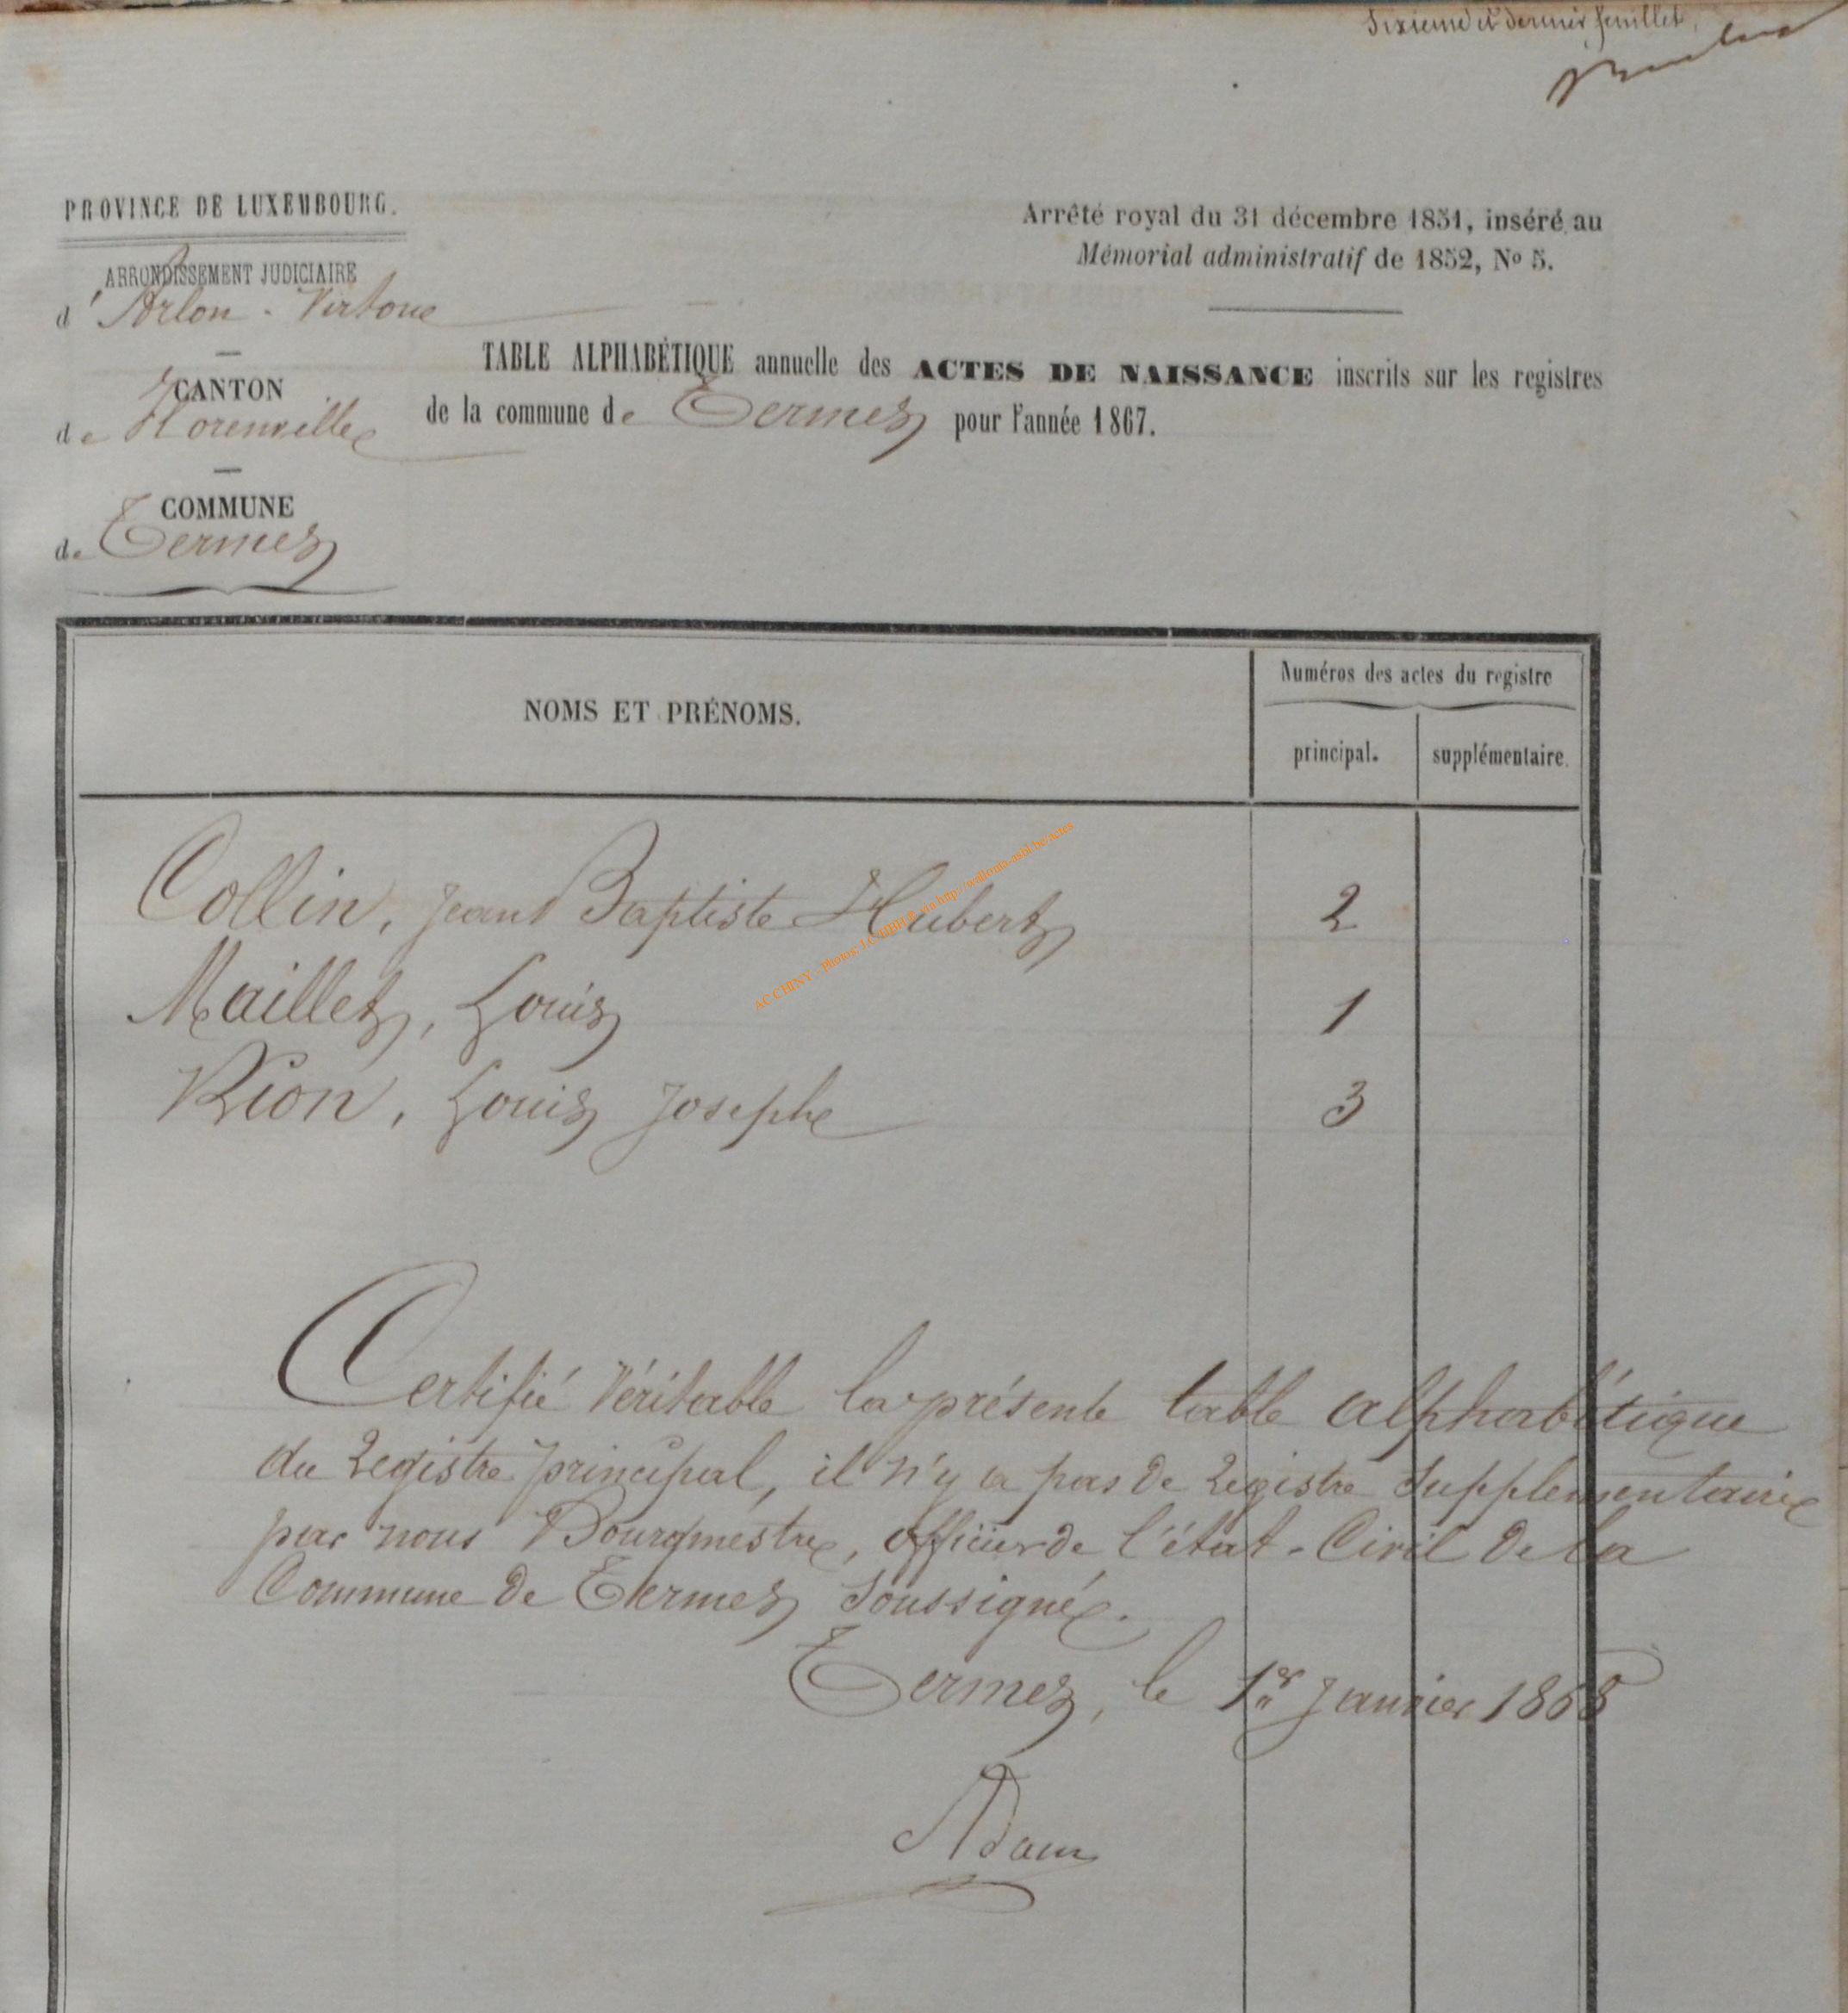 Sixieme et dernier feuillet.
PROVINCE DE LUXEMBOURG.
ARRONDISSEMENT JUDICIAIRE
d'Arlon - Virton
CANTON
de Florenville
COMMUNE
de Termes
Arrêté royal du 31 décembre 1851, inséré au
Mémorial administratif de 1852, No 5.
TABLE ALPHABÉTIQUE annuelle des ACTES DE NAISSANCE inscrits sur les registres
de la commune de Termes pour l'année 1867.
NOMS ET PRÉNOMS.
Numéros des actes du registre
principal.
supplémentaire.
Collin, Jean Baptiste Hubert 2
Maillet, Louis 1
Rion, Louis Joseph 3
Certifié Véritable la présente table alphabétique
du Registre principal, il n'y a pas de Registre Supplémentaire
par nous Bourgmestre, officier de l'état-Civil de la
Commune de Termes Soussigné.
Termes, le 1er Janvier 1868
Adam
AC CHINY - Photos